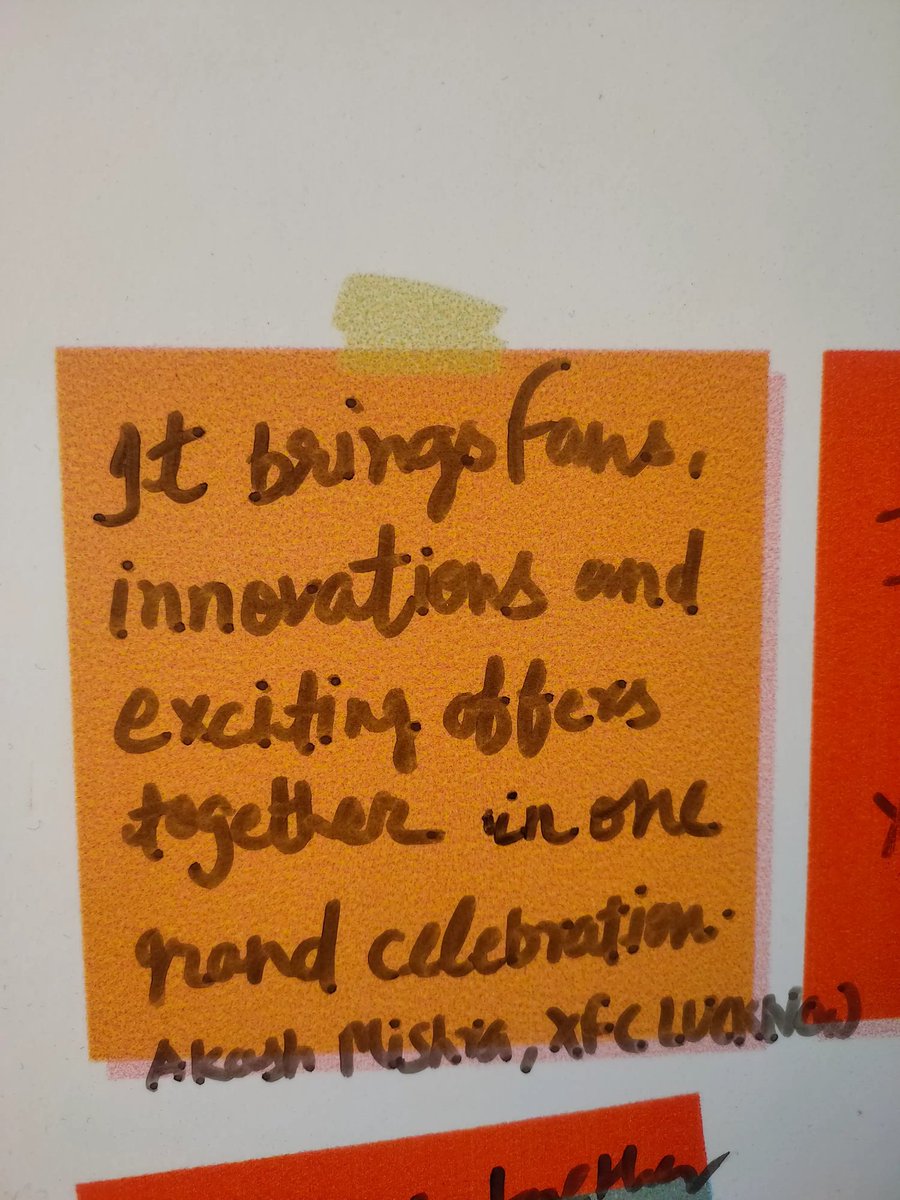 It brings fans,
innovations and
exciting offers
together in one
grand celebration.
Akash Mishra, XFC LUCKNow)
together